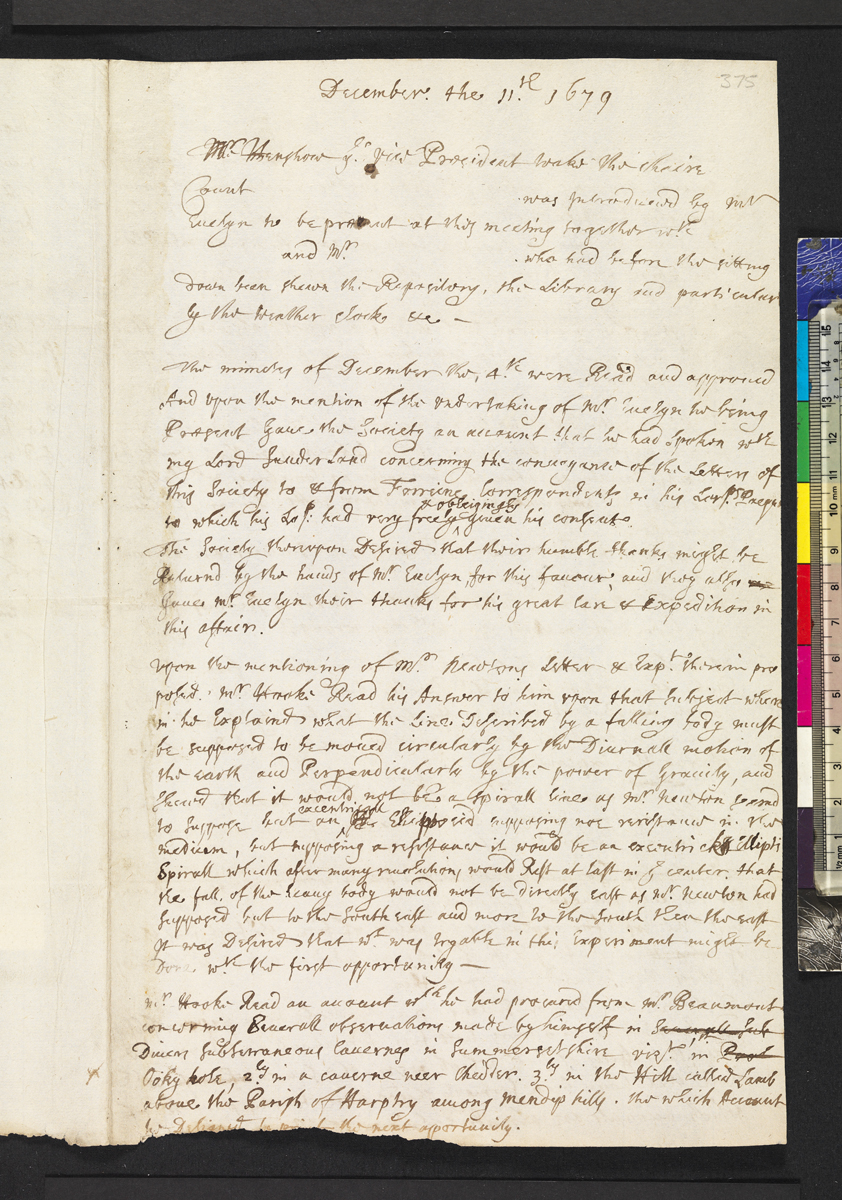 375
December. the 11.th 1679
Mr. Henshaw ye vice Præsident take the chaire
Count was introduced by mr
Euelyn to be present at this meeting together wth
and Mr. who had before the sitting
down been shewn the Repository, the Library and particular
ly the weather clock &c —
The minutes of December the, 4.th were Read and approued
And vpon the mention of the vndertaking of Mr. Euelyn he being
Præsent Gaue the Society an account that he had spoken wth
my Lord Sunderland concerning the conueyance of the Letters of
this Society to & from Forreine Correspondents in his Lorps.
to which his Lop: had very freely & obleigingly giuen his consent.
The Society thervpon Desired that their humble thanks might be
Returnd by the hands of Mr. Euelyn for this fauour, and they also
Gaue mr. Euelyn their thanks for his great Care & Expedition in
this affair.
vpon the mentioning of Mr. Newtons Letter & Expt. therein pro
posed. Mr. Hooke Read his Answer to him vpon that Subject wher
in he Explaind what the Line Described by a falling body must
be supposed to be moued circularly by the Diurnall motion of
the earth and Perpendicularly by the power of Grauity, and
shewd that it would not be a spirall line as Mr. Newton seemd
to suppose but an excentricall supposing noe resistance in the
medium, but supposing a resistance it would be an excentrick Ellipti
Spirall which after many reuolutions would Rest at last in ye center, that
the fall, of the heauy body would not be directly east as Mr. Newton had
supposed but to the South east and more to the South then the east
It was Desired that wt was tryable in this Experiment might be
Done wth the first opportunity —
Mr. Hooke Read an account wch he had procured from Mr. Beaumont
concerning Seuerall obseruations made by himself in
Diuers Subterraneous Cauernes in Summersetshire viz. 1st in
Ooky hole, 2ly in a cauerne neer Chedder. 3ly. in the Hill called Lamb
aboue the Parish of Harptry among mendip hills. the which Account
he Desired to the next opportunity.